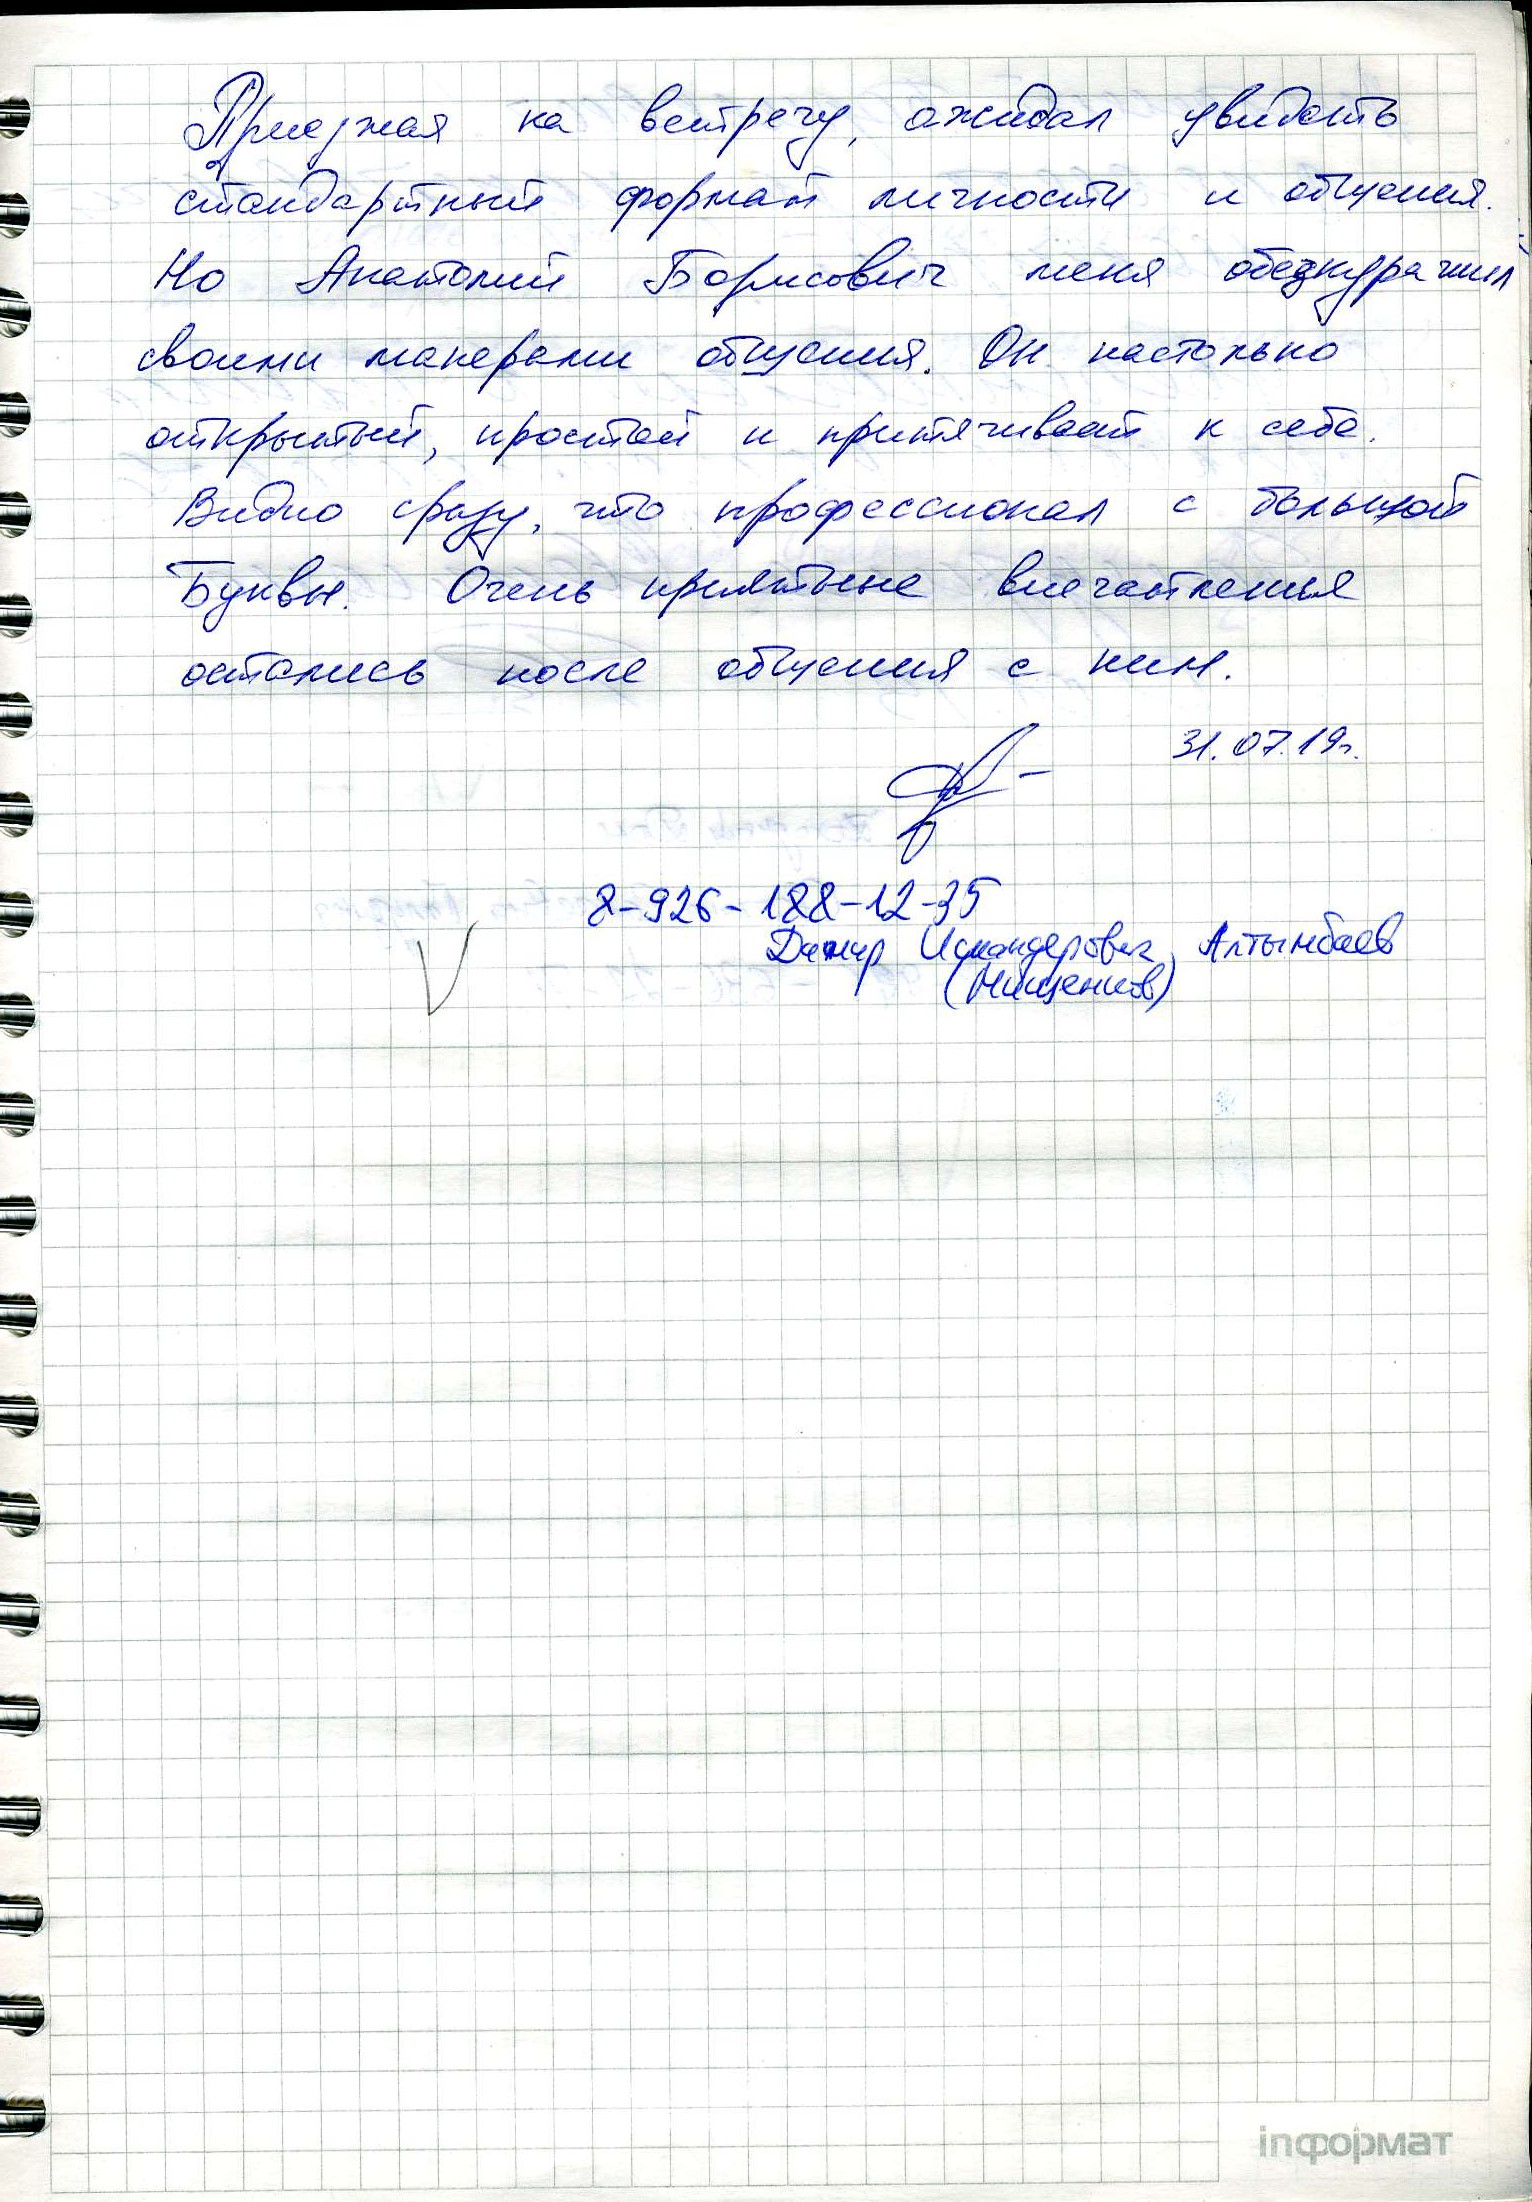 Приезжая на встречу, ожидал увидеть
стандартный формат личности и общения.
Но Анатолий Борисович меня обезкуражил
своими манерами общения. Он настолько
открытый, простой и притягивает к себе.
Видно сразу, что профессионал с большой
Буквы. Очень приятные впечатления
остались после общения с ним.
31.07.19г.
8-926-188-12-35
Дамир Искандерович Алтынбаев
(Мищенков)
inформат